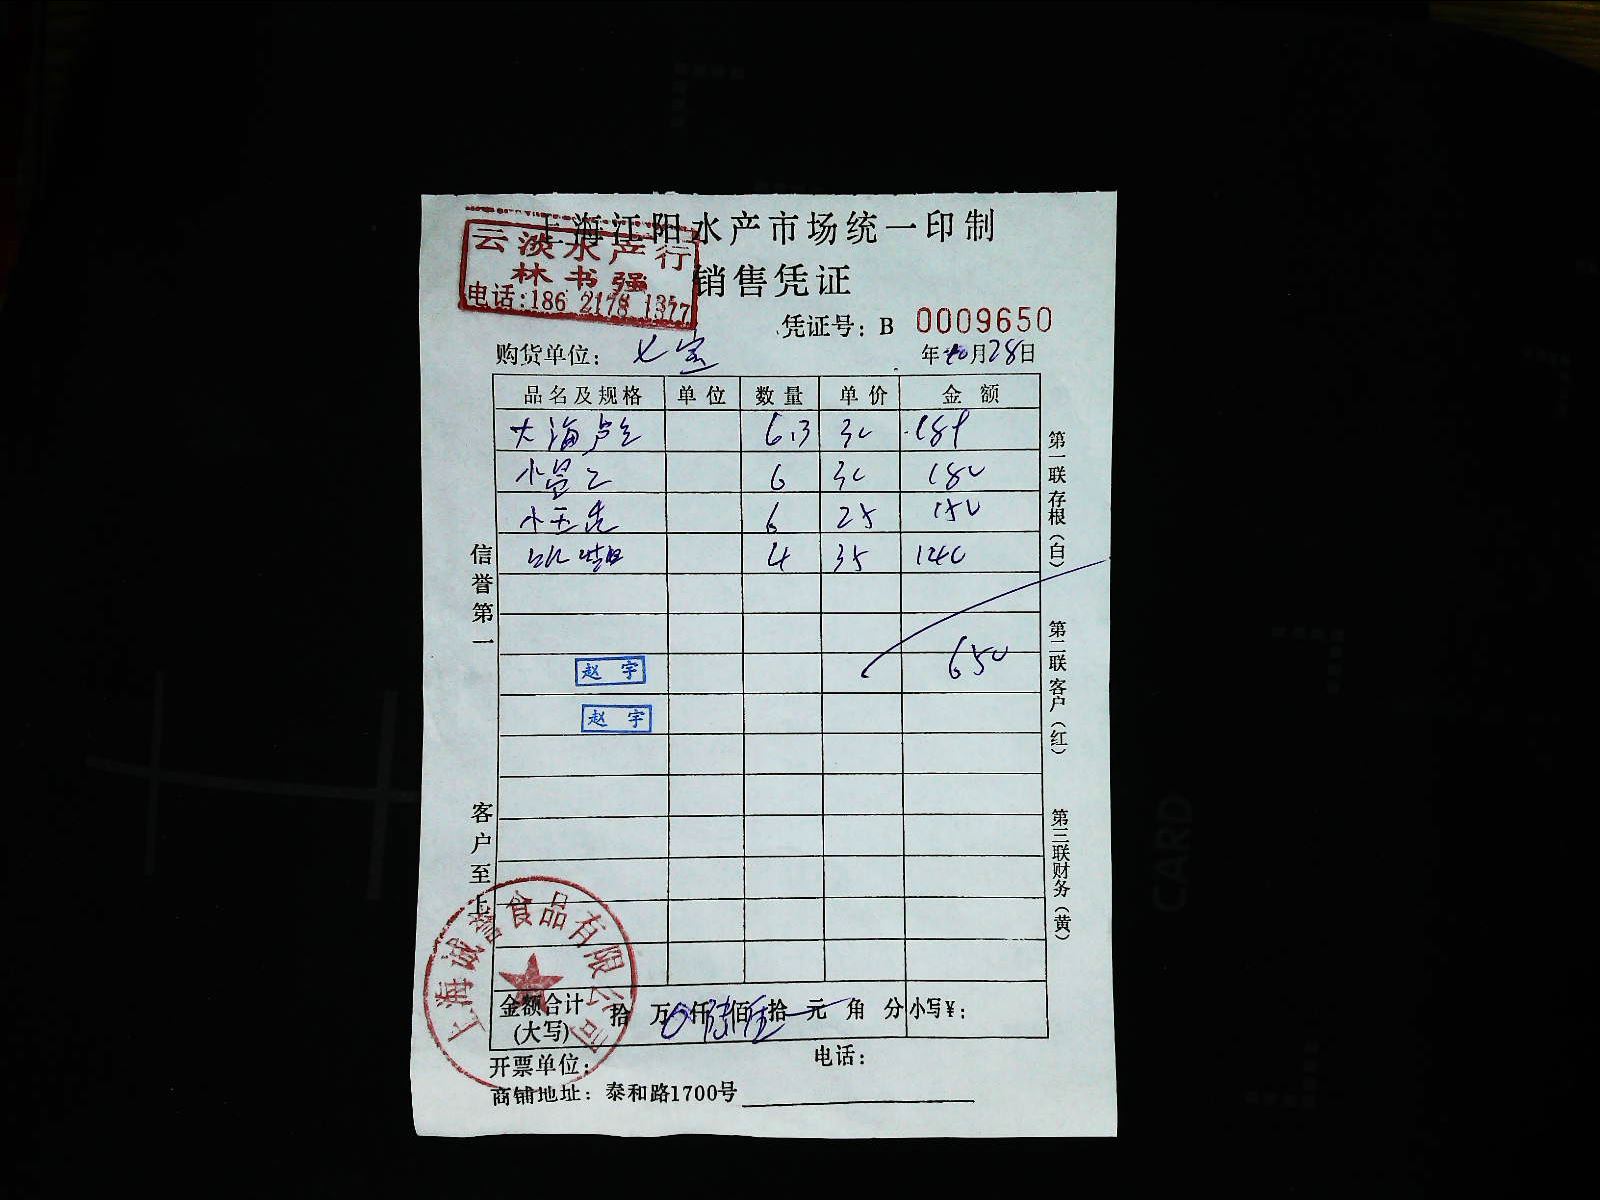 上海江阳水产市场统一印制
云淡水产行
林书强
电话:186 2178 1377
销售凭证
凭证号: B 0009650
购货单位: 七宝
年 10月28日
品名及规格 单位 数量 单价 金额
大海 6.3 30 189
小 6 30 180
小 6 25 150
4 35 140
650
赵宇
赵宇
信誉第一
客户至上
第一联存根(白)
第二联客户(红)
第三联财务(黄)
上海诚誉食品有限公司
金额合计(大写) 拾 万 仟 陆 佰 伍 拾 元 角 分 小写¥:
开票单位: 电话:
商铺地址: 泰和路1700号
CARD